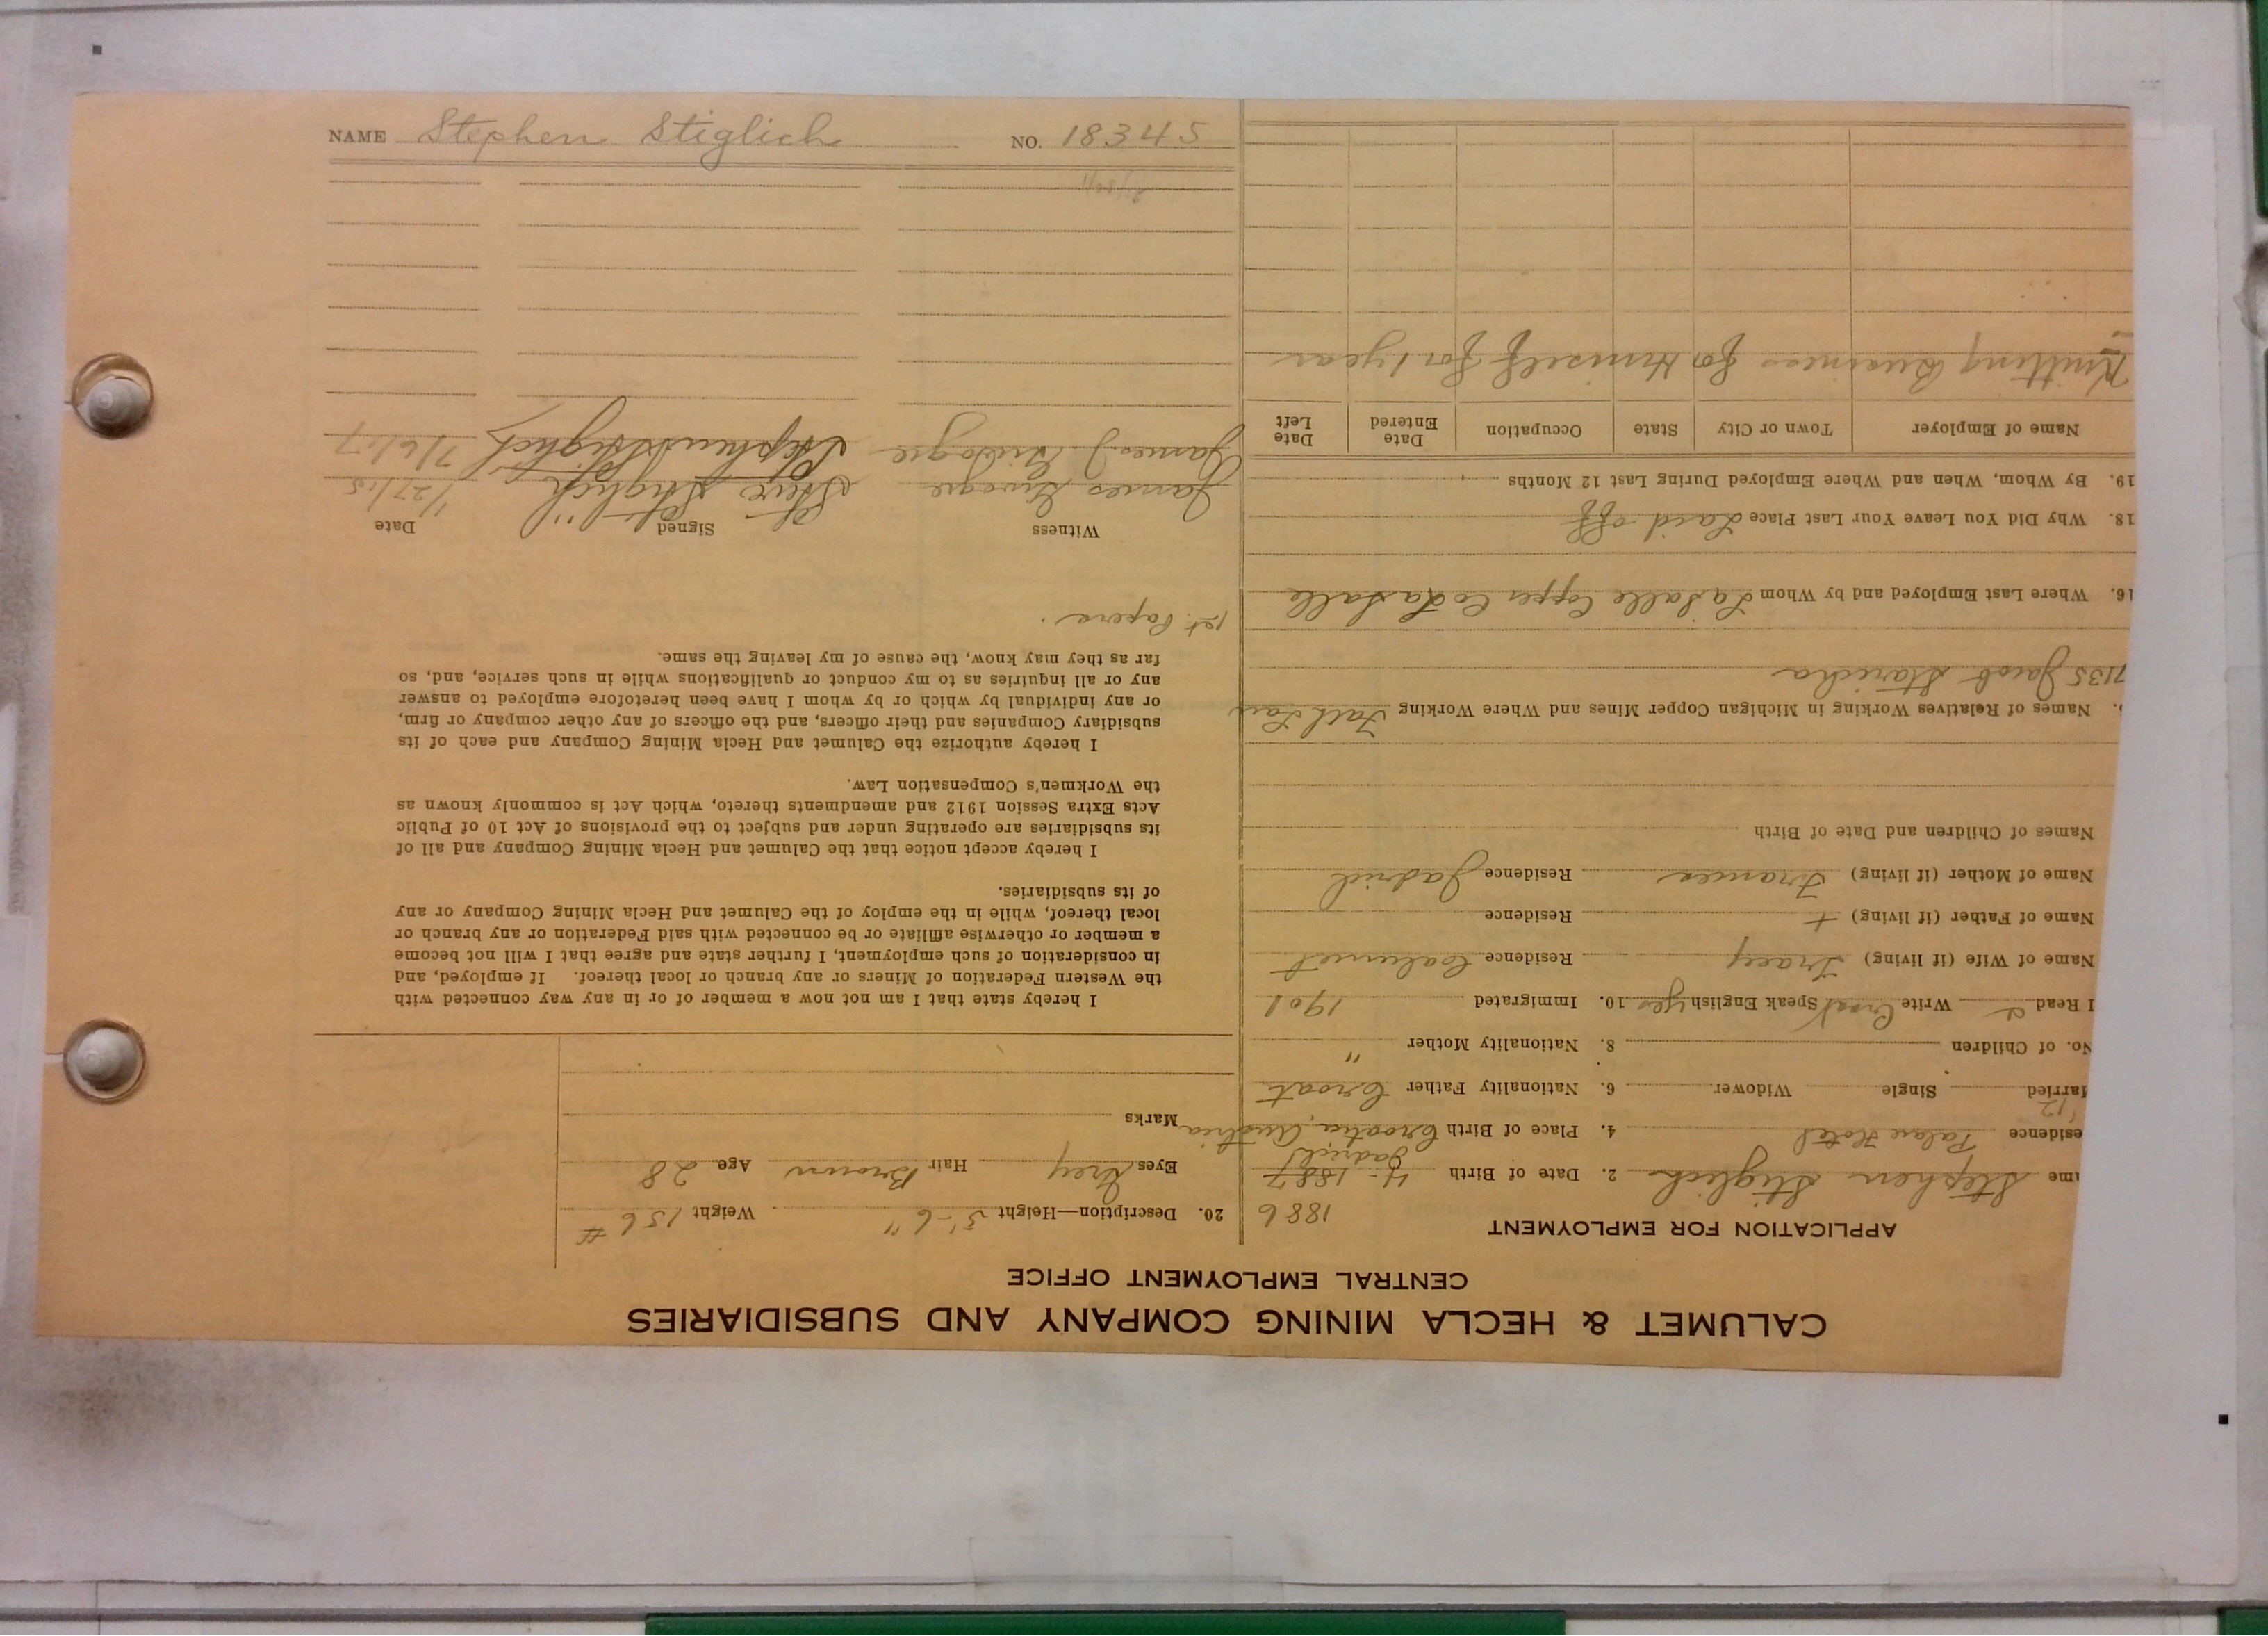 NAME Stephen Stiglich NO. 18345
CALUMET & HECLA MINING COMPANY AND SUBSIDIARIES
CENTRAL EMPLOYMENT OFFICE
APPLICATION FOR EMPLOYMENT
1886
ame Stephen Stiglich 2. Date of Birth 4 - 1887
Jadrich
esidence Palace Hotel 4. Place of Birth Croatia, Austria
'12
Married Single Widower 6. Nationality Father Croat
No. of Children 8. Nationality Mother "
I Read Write Croat Speak English yes 10. Immigrated 1901
Name of Wife (if living) Tracy Residence Calumet
Name of Father (if living) + Residence
Name of Mother (if living) Frances Residence Jadrich
Names of Children and Date of Birth
5. Names of Relatives Working in Michigan Copper Mines and Where Working Fath Law
7135 Jacob Staricha
16. Where Last Employed and by Whom LaSalle Copper Co LaSalle
18. Why Did You Leave Your Last Place Laid off
19. By Whom, When and Where Employed During Last 12 Months
Name of Employer Town or City State Occupation Date Entered Date Left
Knitting Business for Himself for 1 year
20. Description—Height 5'-6" Weight 156 #
Eyes Grey Hair Brown Age 28
Marks
I hereby state that I am not now a member of or in any way connected with
the Western Federation of Miners or any branch or local thereof. If employed, and
in consideration of such employment, I further state and agree that I will not become
a member or otherwise affiliate or be connected with said Federation or any branch or
local thereof, while in the employ of the Calumet and Hecla Mining Company or any
of its subsidiaries.
I hereby accept notice that the Calumet and Hecla Mining Company and all of
its subsidiaries are operating under and subject to the provisions of Act 10 of Public
Acts Extra Session 1912 and amendments thereto, which Act is commonly known as
the Workmen's Compensation Law.
I hereby authorize the Calumet and Hecla Mining Company and each of its
subsidiary Companies and their officers, and the officers of any other company or firm,
or any individual by which or by whom I have been heretofore employed to answer
any or all inquiries as to my conduct or qualifications while in such service, and, so
far as they may know, the cause of my leaving the same.
1st. Papers.
Witness Signed Date
James Steve Stiglich 1/27/15
James J. Stephen Stiglich 7/6/17